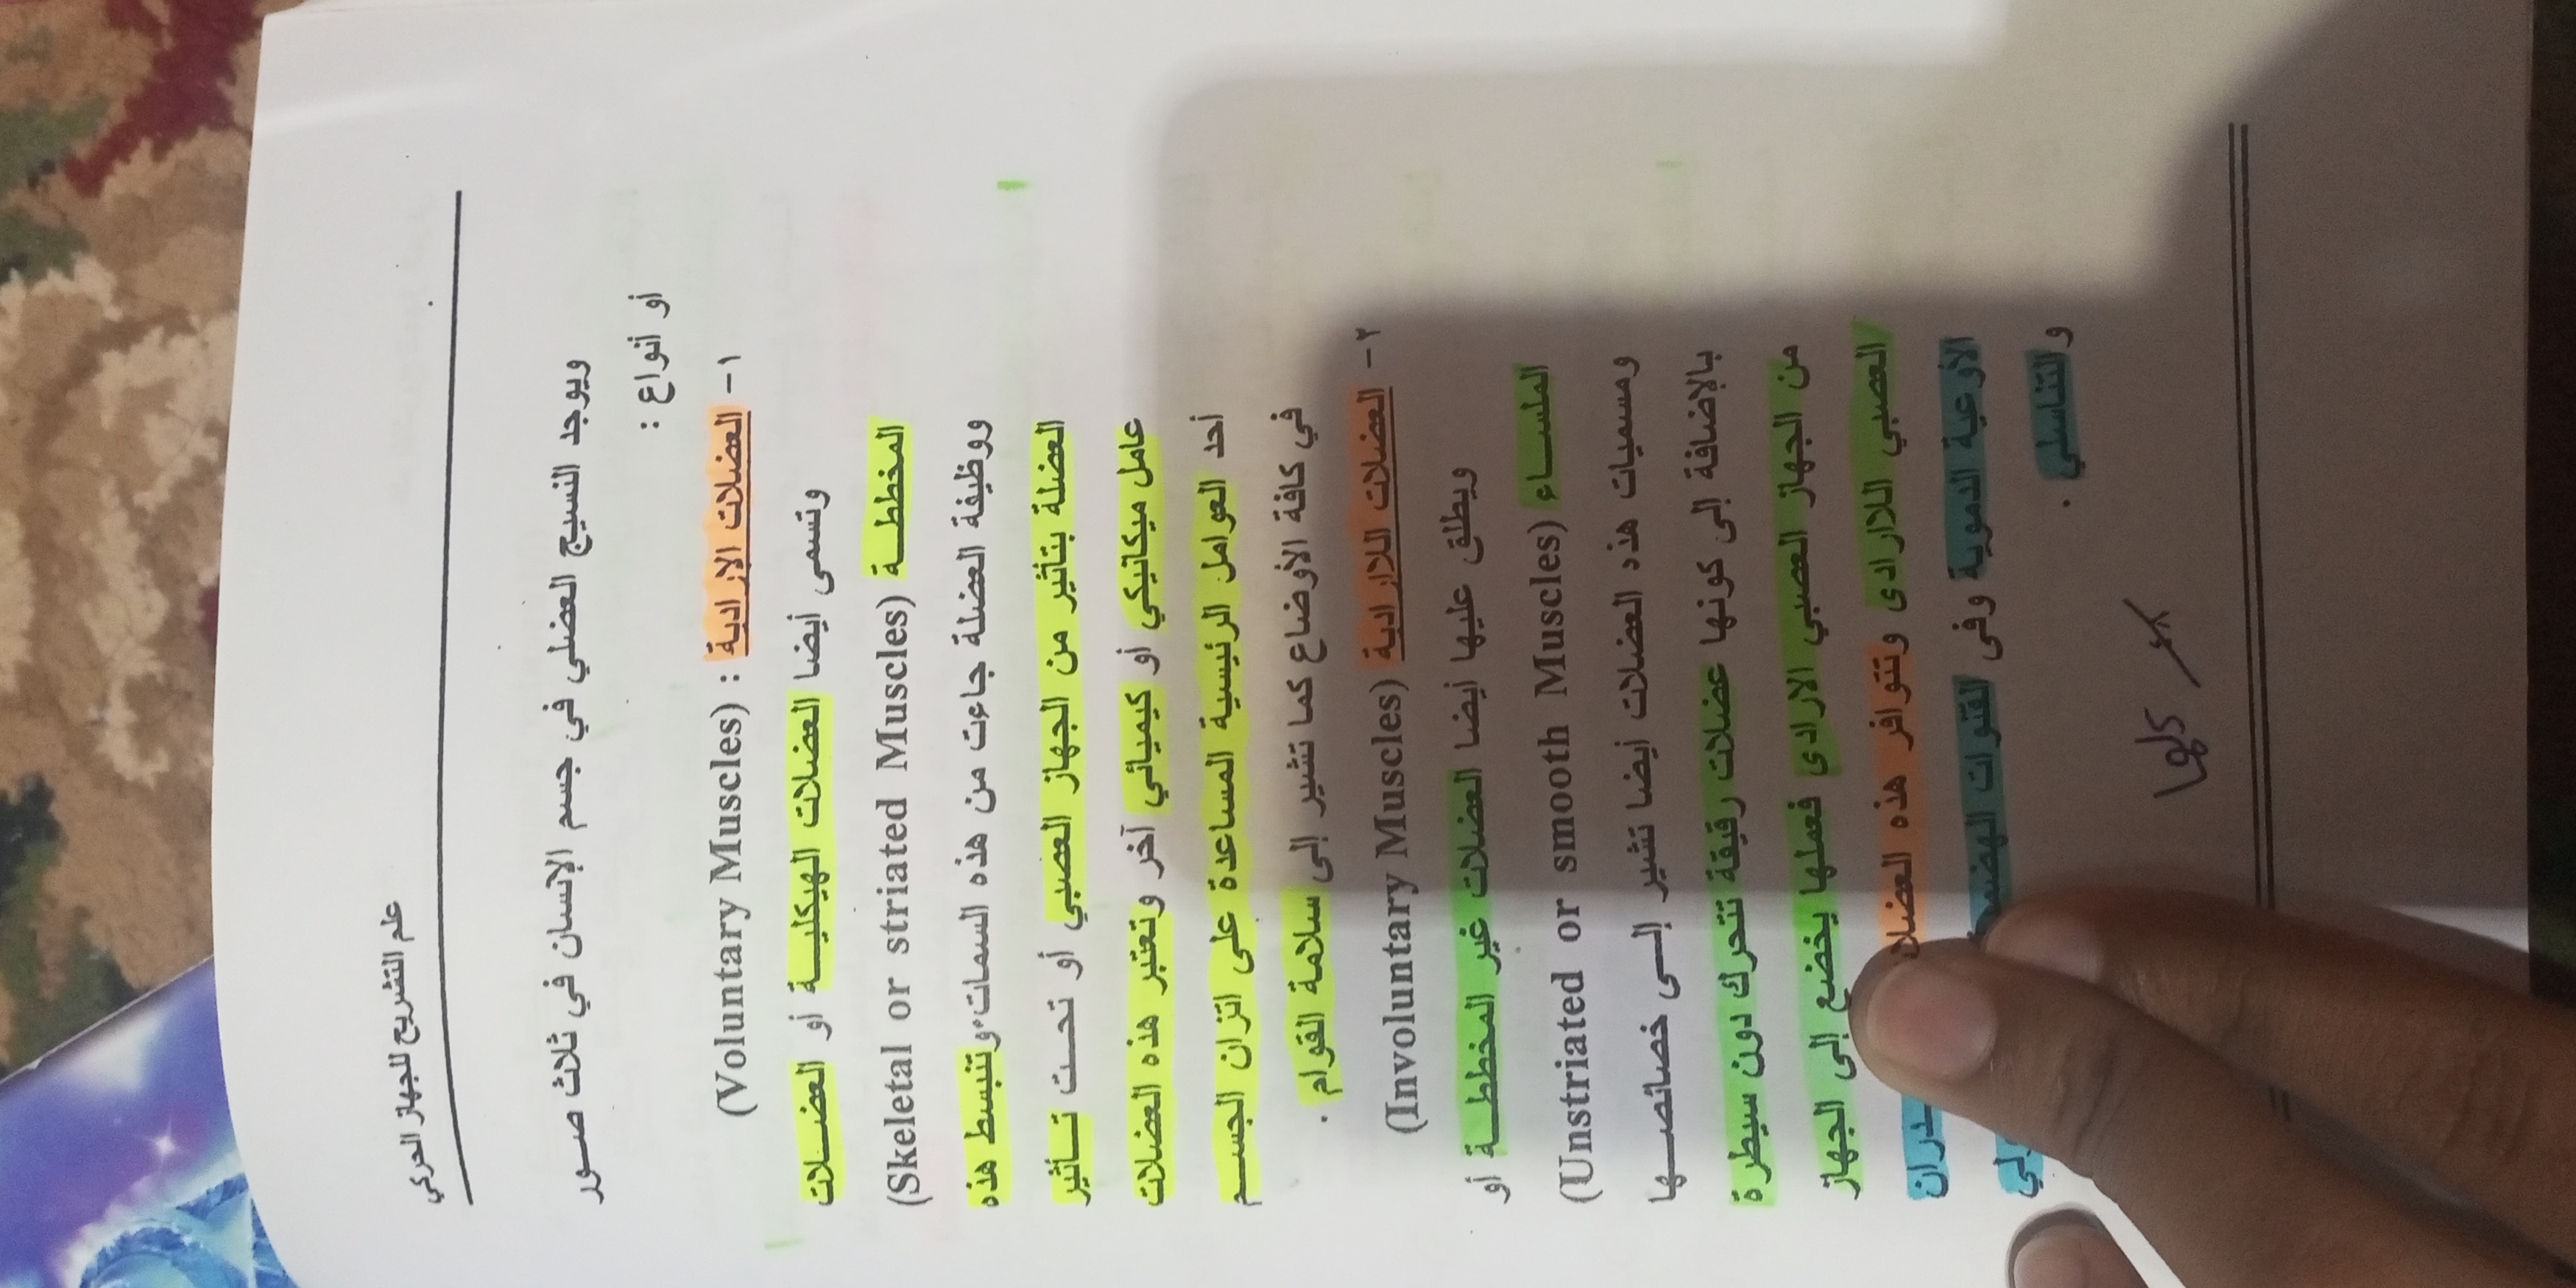 علم التشريح للجهاز الحركي
ويوجد النسيج العضلي في جسم الإنسان في ثلاث صور
أو أنواع :
١- العضلات الارادية : (Voluntary Muscles)
وتسمى أيضا العضلات الهيكلية أو العضلات
المخططة (Skeletal or striated Muscles)
ووظيفة العضلة جاءت من هذه السمات، وتنبسط هذه
العضلة بتأثير من الجهاز العصبي أو تحت تأثير
عامل ميكانيكي أو كيميائي آخر وتعتبر هذه العضلات
أحد العوامل الرئيسية المساعدة على اتزان الجسم
في كافة الأوضاع كما تشير إلى سلامة القوام .
٢- العضلات اللارادية (Involuntary Muscles)
ويطلق عليها أيضا العضلات غير المخططة أو
الملساء (Unstriated or smooth Muscles)
ومسميات هذه العضلات أيضا تشير إلى خصائصها
بالإضافة إلى كونها عضلات رقيقة تتحرك دون سيطرة
من الجهاز العصبي الارادى فعملها يخضع إلى الجهاز
العصبي اللارادى وتتوافر هذه
الأوعية الدموية وفى القنوات
والتناسلي .